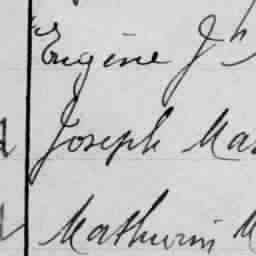 Eugène Jh
Joseph Ma
Mathurin M